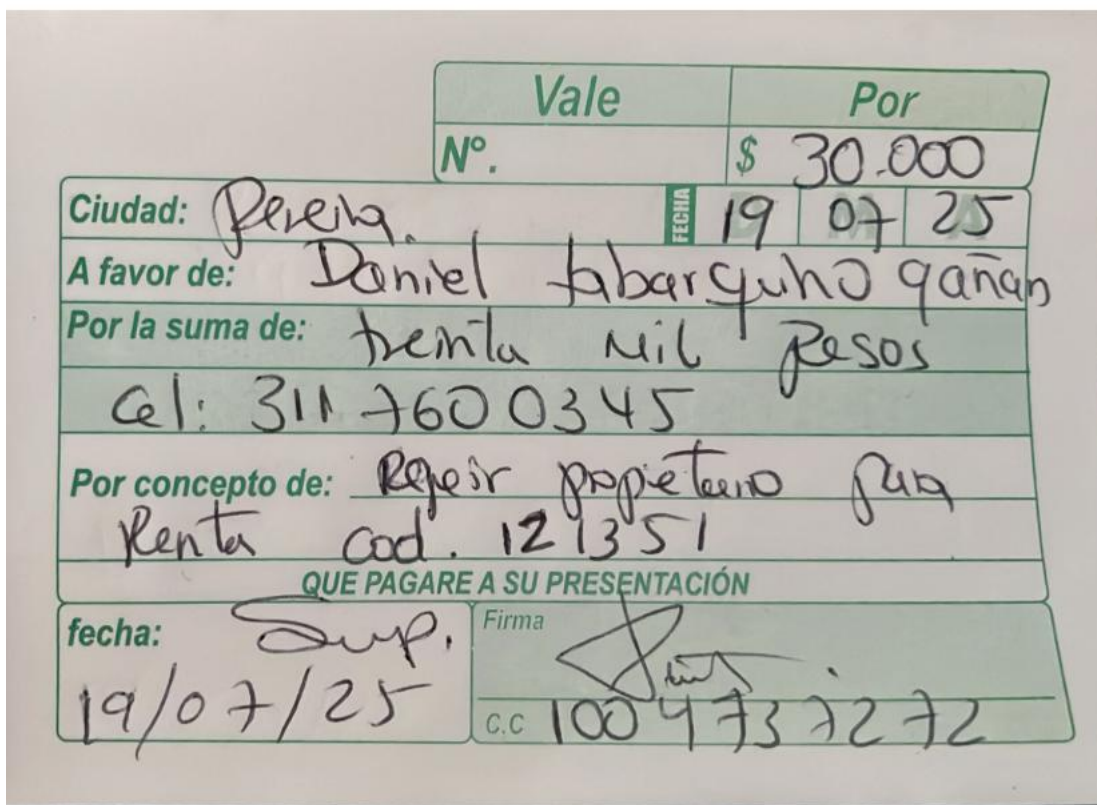 Vale Por
Nº. $ 30.000
Ciudad: Pereira. FECHA 19 07 25
A favor de: Daniel tabarquino gañan
Por la suma de: treinta mil pesos
Cel: 311 760 0345
Por concepto de: propietario para
Renta cod. 121351
QUE PAGARE A SU PRESENTACIÓN
fecha: Sup. Firma
19/07/25 C.C 1004737272